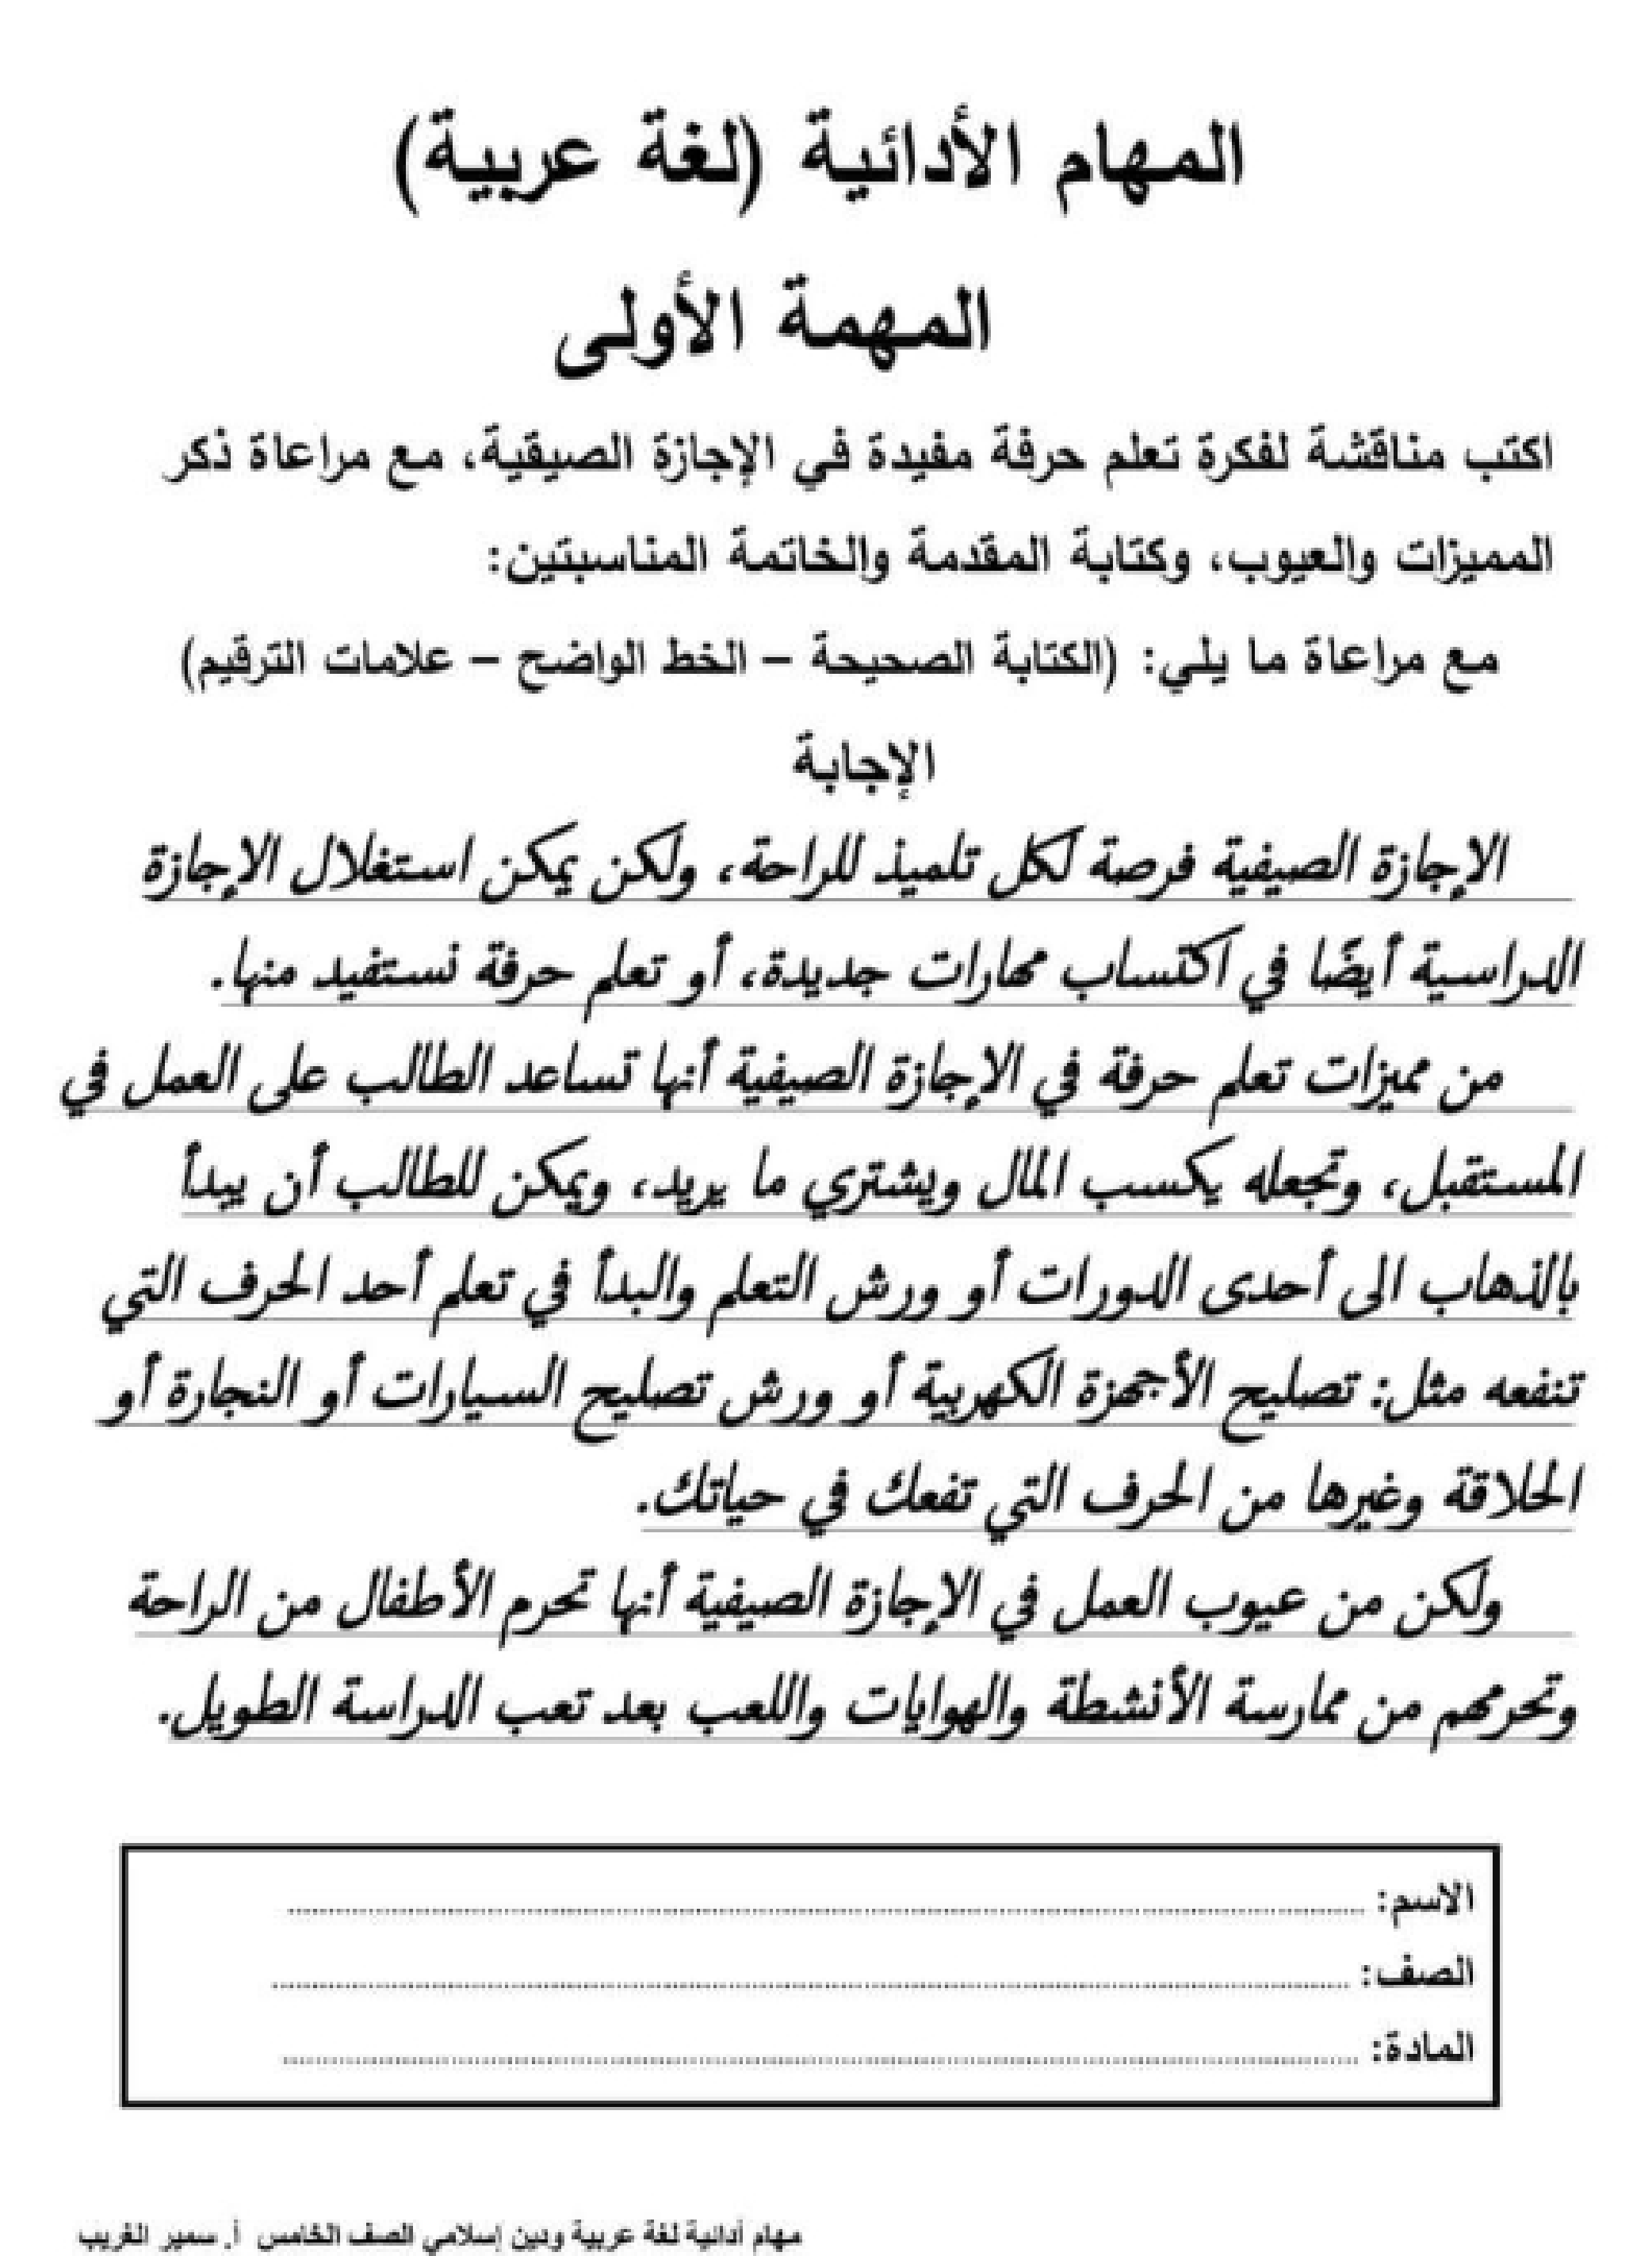 المهام الأدائية (لغة عربية)
المهمة الأولى
اكتب مناقشة لفكرة تعلم حرفة مفيدة في الإجازة الصيقية، مع مراعاة ذكر
المميزات والعيوب، وكتابة المقدمة والخاتمة المناسبتين:
مع مراعاة ما يلي: (الكتابة الصحيحة – الخط الواضح – علامات الترقيم)
الإجابة
الإجازة الصيفية فرصة لكل تلميذ للراحة، ولكن يمكن استغلال الإجازة
الدراسية أيضًا في اكتساب مهارات جديدة، أو تعلم حرفة نستفيد منها.
من مميزات تعلم حرفة في الإجازة الصيفية أنها تساعد الطالب على العمل في
المستقبل، وتجعله يكسب المال ويشتري ما يريد، ويمكن للطالب أن يبدأ
بالذهاب الى أحدى الدورات أو ورش التعلم والبدأ في تعلم أحد الحرف التي
تنفعه مثل: تصليح الأجهزة الكهربية أو ورش تصليح السيارات أو النجارة أو
الحلاقة وغيرها من الحرف التي تفعك في حياتك.
ولكن من عيوب العمل في الإجازة الصيفية أنها تحرم الأطفال من الراحة
وتحرمهم من ممارسة الأنشطة والهوايات واللعب بعد تعب الدراسة الطويل.
الاسم:
الصف:
المادة:
مهام أدائية لغة عربية ودين إسلامي الصف الخامس أ. سمير الغريب